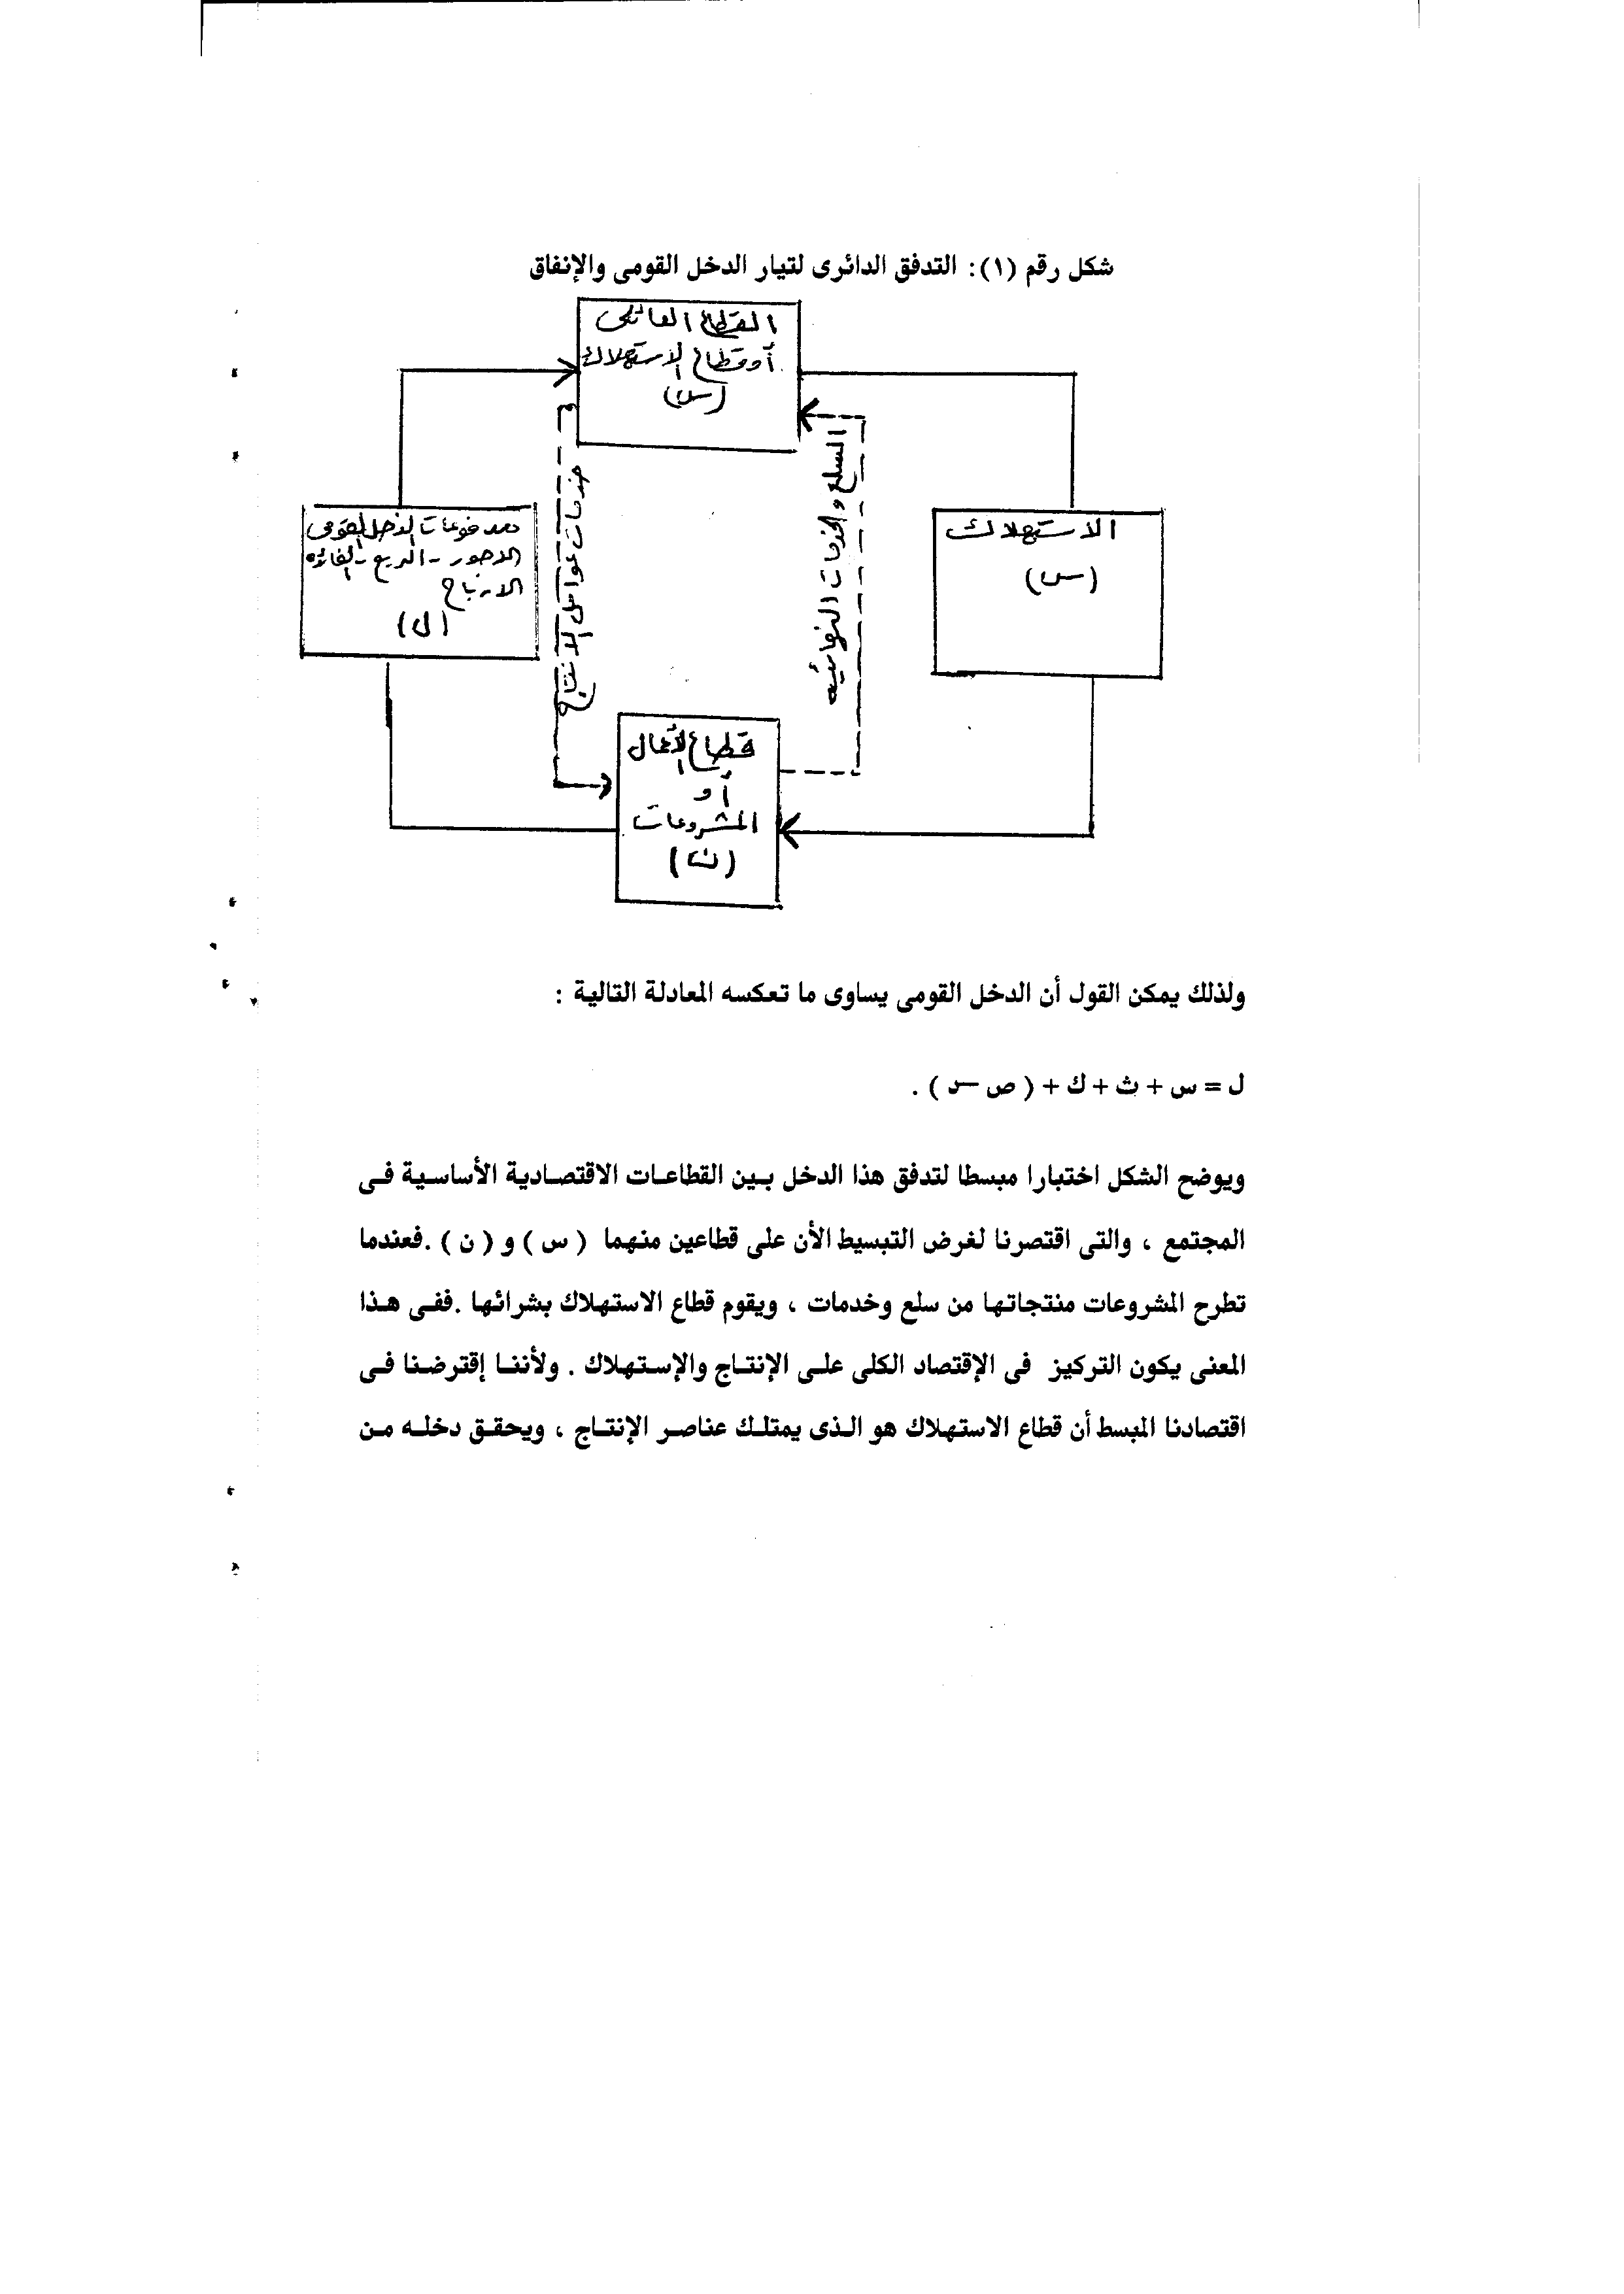 شكل رقم (١): التدفق الدائرى لتيار الدخل القومى والإنفاق
القطاع العائلى
أو قطاع الاستهلاك
(س)
السلع والخدمات النهائيه
خدمات عوامل الانتاج
الاستهلاك
(س)
مدفوعات الدخل القومى
الاجور - الريع - الفائده
الارباح
(ل)
قطاع الأعمال
أو
المشروعات
(ن)
ولذلك يمكن القول أن الدخل القومى يساوى ما تعكسه المعادلة التالية :
ل = س + ث + ك + ( ص – د ) .
ويوضح الشكل اختبارا مبسطا لتدفق هذا الدخل بين القطاعات الاقتصادية الأساسية فى
المجتمع ، والتى اقتصرنا لغرض التبسيط الأن على قطاعين منهما ( س ) و ( ن ) .فعندما
تطرح المشروعات منتجاتها من سلع وخدمات ، ويقوم قطاع الاستهلاك بشرائها .ففى هذا
المعنى يكون التركيز فى الإقتصاد الكلى على الإنتاج والإستهلاك . ولأننا إقترضنا فى
اقتصادنا المبسط أن قطاع الاستهلاك هو الذى يمتلك عناصر الإنتاج ، ويحقق دخله من